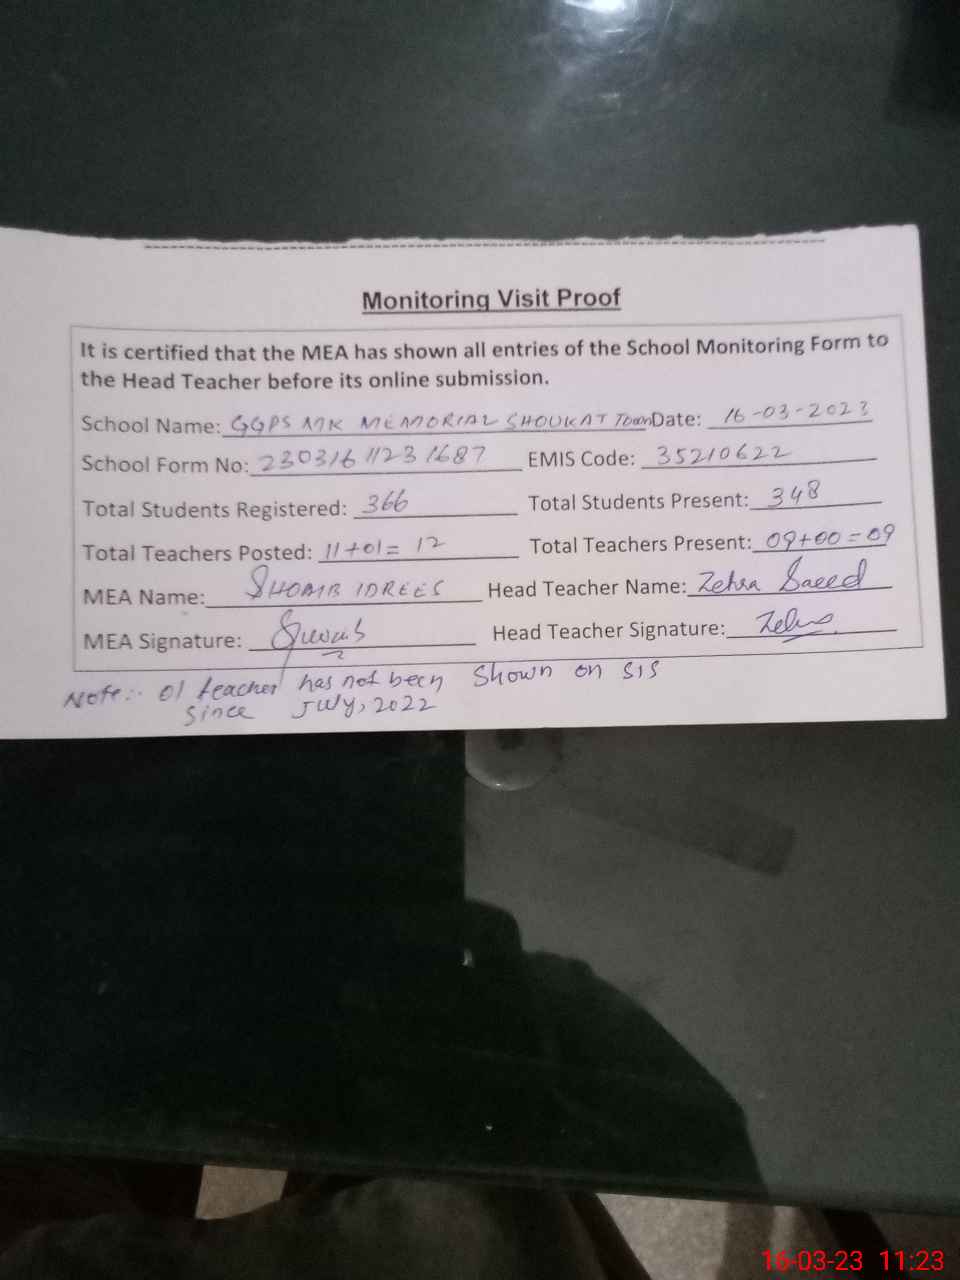 Monitoring Visit Proof
It is certified that the MEA has shown all entries of the School Monitoring Form to
the Head Teacher before its online submission.
School Name: GGPS MK MEMORIAL SHOUKAT Town Date: 16-03-2023
School Form No: 23031611231687 EMIS Code: 35210622
Total Students Registered: 366 Total Students Present: 348
Total Teachers Posted: 11+01= 12 Total Teachers Present: 09+00=09
MEA Name: SHOAIB IDREES Head Teacher Name: Zehra Saeed
MEA Signature: Head Teacher Signature:
Note:- 01 teacher has not been shown on SIS
since July, 2022
16-03-23 11:23